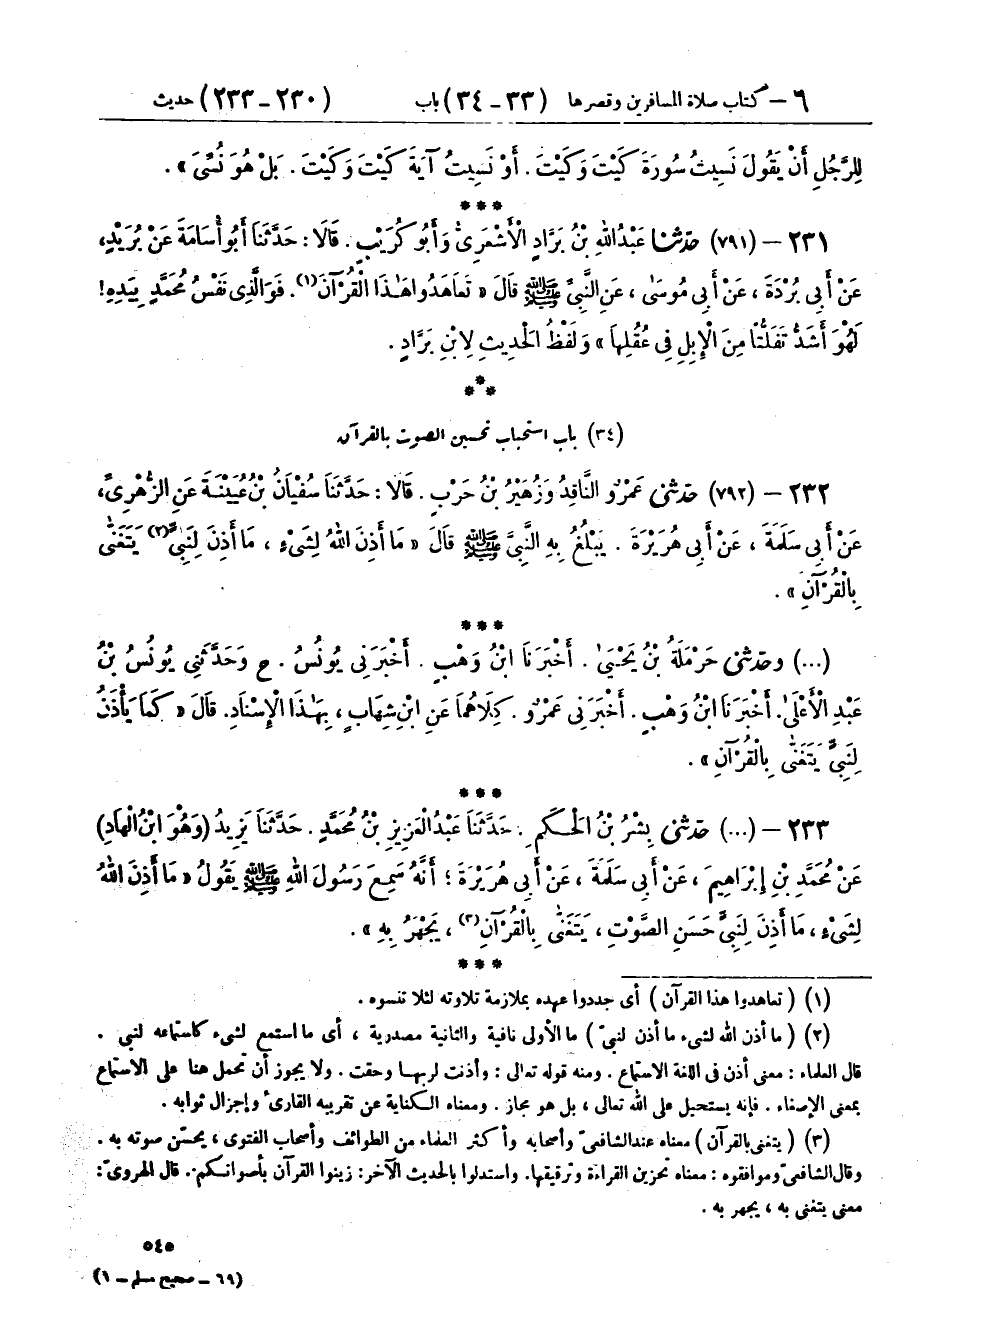 ٦ – كتاب صلاة المسافرين وقصرها (٣٣ – ٣٤) باب (٢٣٠ – ٢٣٣) حديث
لِلرَّجُلِ أَنْ يَقُولَ نَسِيتُ سُورَةَ كَيْتَ وَكَيْتَ . أَوْ نَسِيتُ آيَةَ كَيْتَ وَكَيْتَ . بَلْ هُوَ نُسِّىَ » .
***
٢٣١ – (٧٩١) حدثنا عَبْدُ اللهِ بْنُ بَرَّادٍ الْأَشْعَرِىُّ وَأَبُو كُرَيْبٍ . قَالَا : حَدَّثَنَا أَبُو أُسَامَةَ عَنْ بُرَيْدٍ،
عَنْ أَبِى بُرْدَةَ ، عَنْ أَبِى مُوسَىٰ ، عَنِ النَّبِىِّ ﷺ قَالَ « تَعَاهَدُوا هَٰذَا الْقُرْآنَ(١). فَوَالَّذِى نَفْسُ مُحَمَّدٍ بِيَدِهِ !
لَهُوَ أَشَدُّ تَفَلُّتًا مِنَ الْإِبِلِ فِى عُقُلِهَا » وَلَفْظُ الْحَدِيثِ لِابْنِ بَرَّادٍ .
***
(٣٤) باب استحباب تحسين الصوت بالقرآن
٢٣٢ – (٧٩٢) حدثنى عَمْرٌو النَّاقِدُ وَزُهَيْرُ بْنُ حَرْبٍ . قَالَا : حَدَّثَنَا سُفْيَانُ بْنُ عُيَيْنَةَ عَنِ الزُّهْرِىِّ،
عَنْ أَبِى سَلَمَةَ ، عَنْ أَبِى هُرَيْرَةَ . يَبْلُغُ بِهِ النَّبِىَّ ﷺ قَالَ « مَا أَذِنَ اللهُ لِشَىْءٍ ، مَا أَذِنَ لِنَبِىٍّ(٢) يَتَغَنَّىٰ
بِالْقُرْآنِ » .
***
(...) وحدثنى حَرْمَلَةُ بْنُ يَحْيَىٰ . أَخْبَرَنَا ابْنُ وَهْبٍ . أَخْبَرَنِى يُونُسُ . ح وَحَدَّثَنِى يُونُسُ بْنُ
عَبْدِ الْأَعْلَىٰ. أَخْبَرَنَا ابْنُ وَهْبٍ . أَخْبَرَنِى عَمْرٌو . كِلَاهُمَا عَنِ ابْنِ شِهَابٍ ، بِهَٰذَا الْإِسْنَادِ. قَالَ « كَمَا يَأْذَنُ
لِنَبِىٍّ يَتَغَنَّىٰ بِالْقُرْآنِ » .
***
٢٣٣ – (...) حدثنى بِشْرُ بْنُ الْحَكَمِ . حَدَّثَنَا عَبْدُ الْعَزِيزِ بْنُ مُحَمَّدٍ . حَدَّثَنَا يَزِيدُ (وَهُوَ ابْنُ الْهَادِ)
عَنْ مُحَمَّدِ بْنِ إِبْرَاهِيمَ ، عَنْ أَبِى سَلَمَةَ ، عَنْ أَبِى هُرَيْرَةَ ؛ أَنَّهُ سَمِعَ رَسُولَ اللهِ ﷺ يَقُولُ « مَا أَذِنَ اللهُ
لِشَىْءٍ ، مَا أَذِنَ لِنَبِىٍّ حَسَنِ الصَّوْتِ ، يَتَغَنَّىٰ بِالْقُرْآنِ(٣) ، يَجْهَرُ بِهِ » .
***
(١) ( تعاهدوا هذا القرآن ) أى جددوا عهده بملازمة تلاوته لئلا تنسوه .
(٢) ( ما أذن الله لشىء ما أذن لنبىّ ) ما الأولى نافية والثانية مصدرية ، أى ما استمع لشىء كاستماعه لنبى .
قال العلماء : معنى أذن فى اللغة الاستماع . ومنه قوله تعالى : وأذنت لربها وحقت . ولا يجوز أن تحمل هنا على الاستماع
بمعنى الإصغاء . فإنه يستحيل على الله تعالى ، بل هو مجاز . ومعناه الكناية عن تقريبه القارئ وإجزال ثوابه .
(٣) ( يتغنى بالقرآن ) معناه عند الشافعىّ وأصحابه وأكثر العلماء من الطوائف وأصحاب الفتوى ، يحسّن صوته به .
وقال الشافعىّ وموافقوه : معناه تحزين القراءة وترقيقها. واستدلوا بالحديث الآخر: زينوا القرآن بأصواتكم. قال الهروىّ:
معنى يتغنى به ، يجهر به .
٥٤٥
(٦٩ – صحيح مسلم – ١)